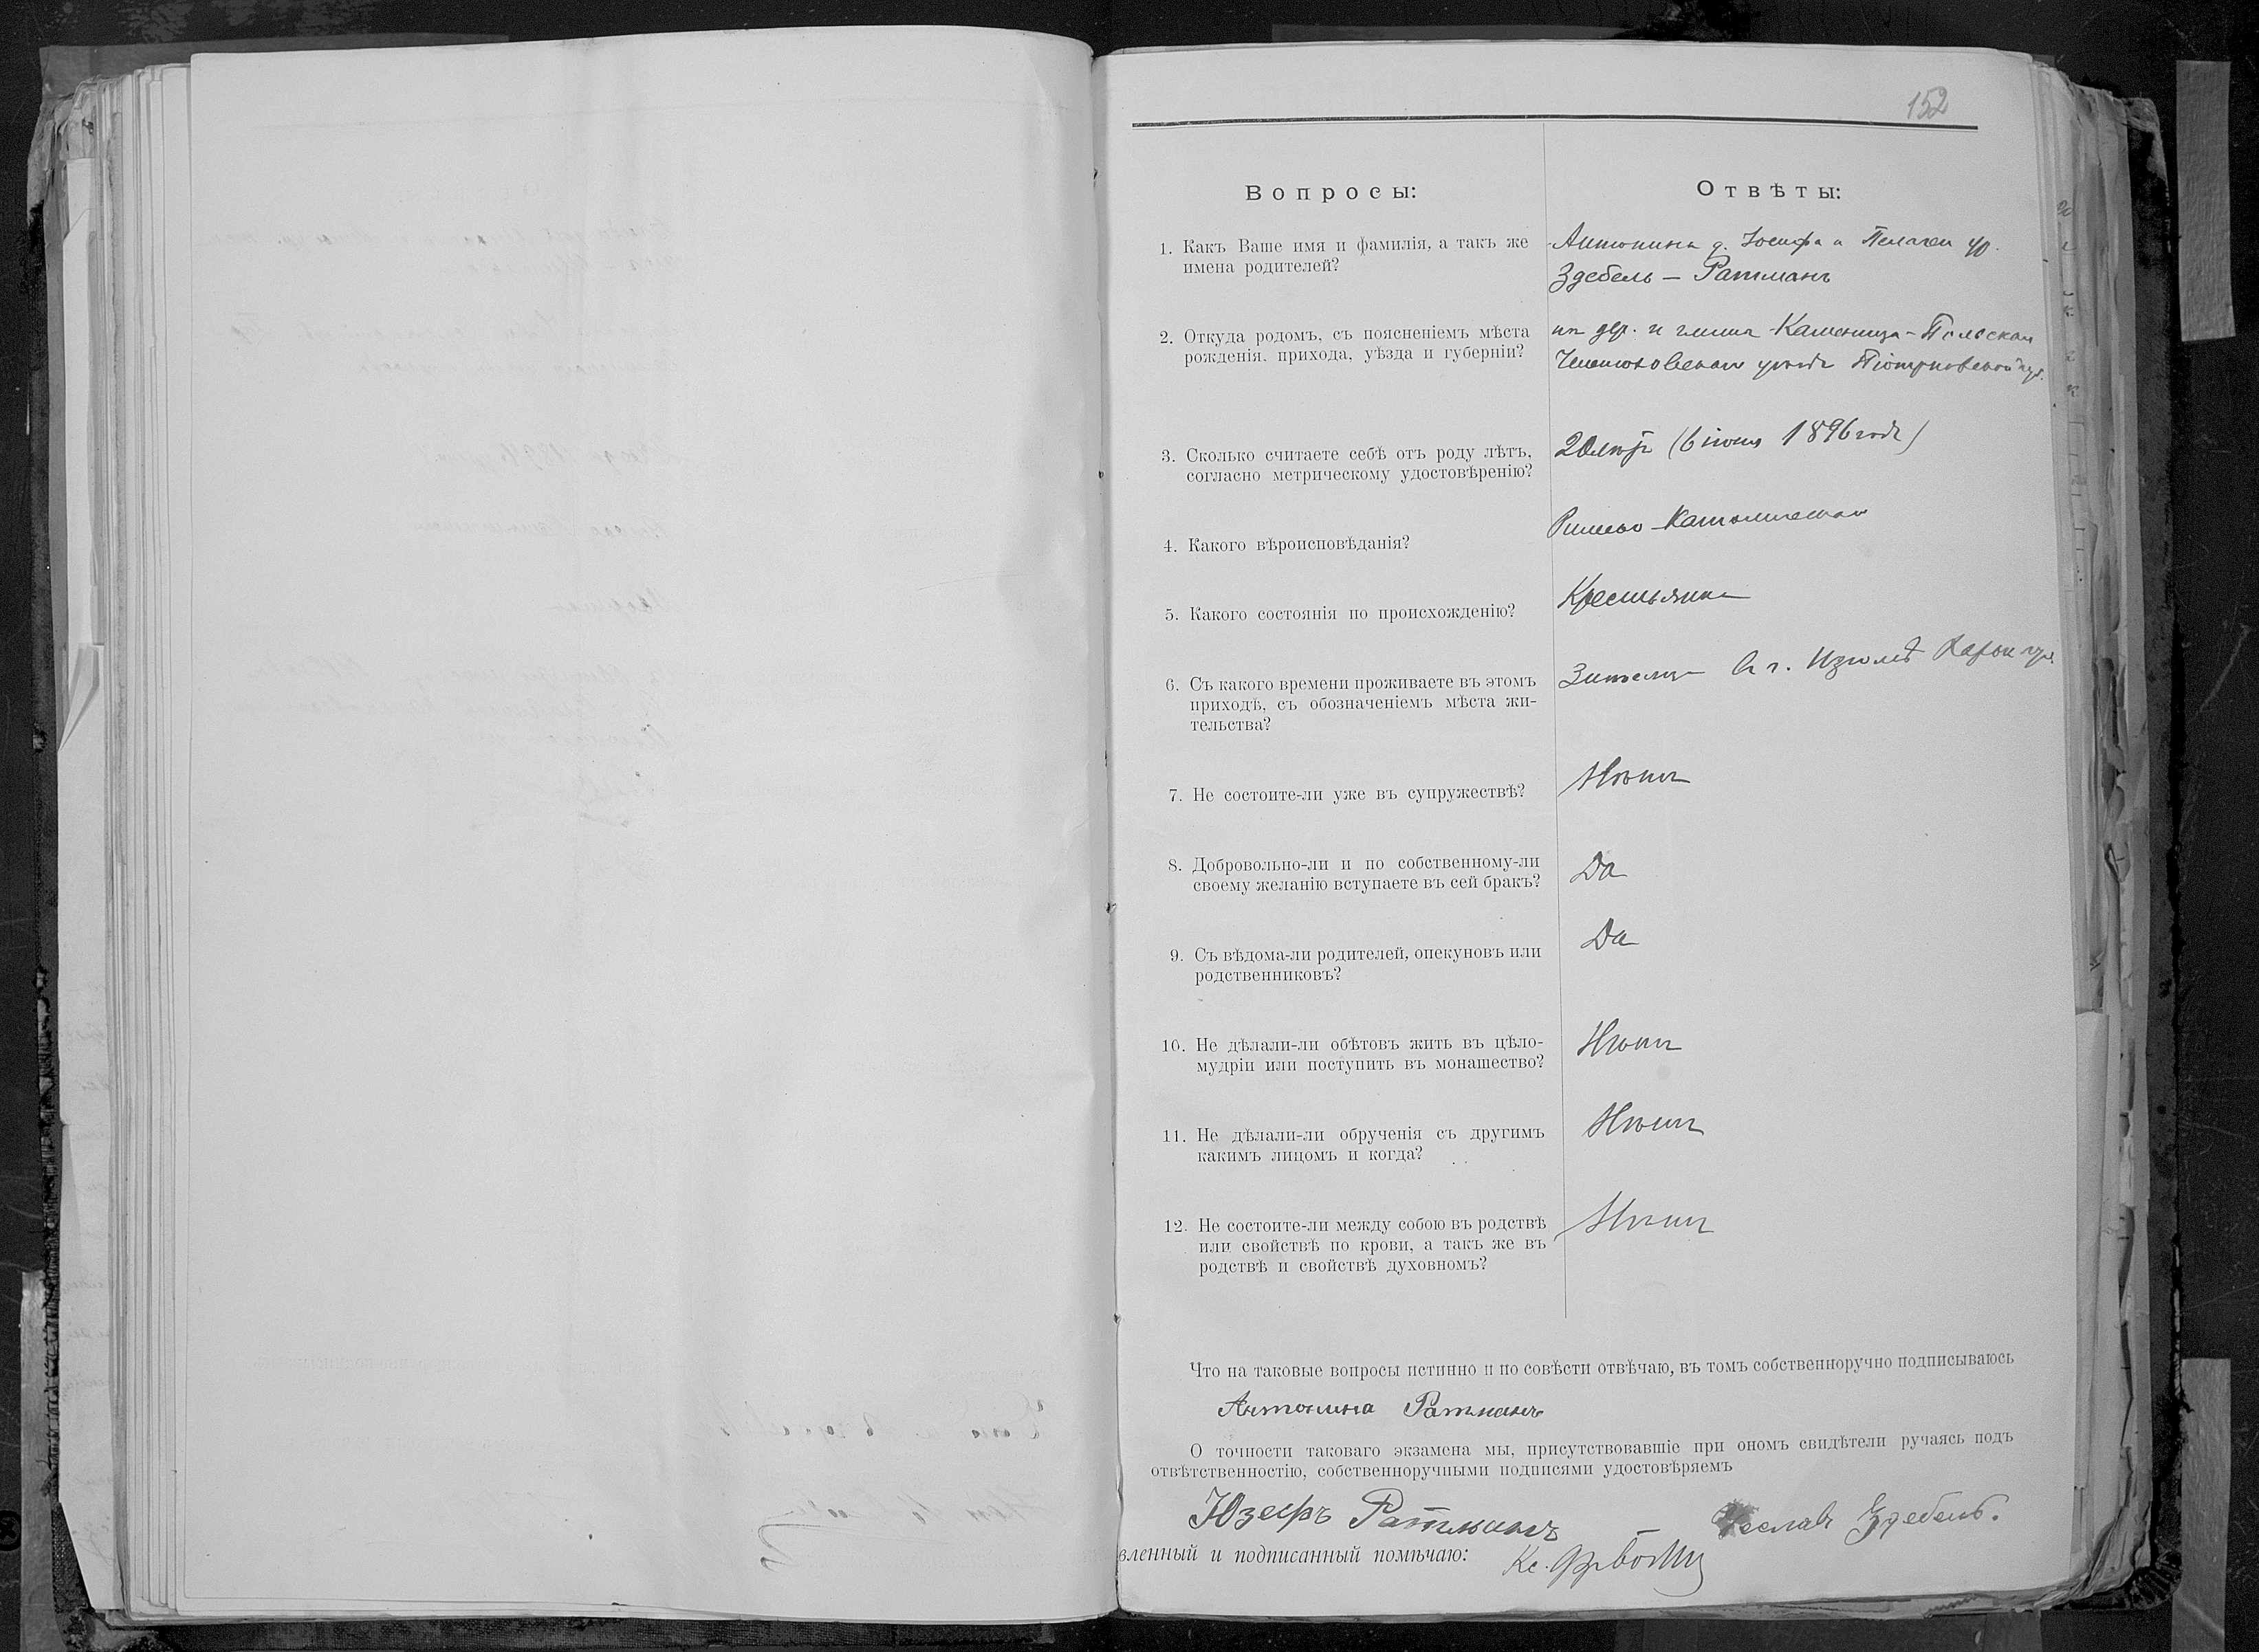 152
Вопросы:
Отвѣты:
1. Какъ Ваше имя и фамилія, а такъ же
имена родителей?
Антонина д. Іосифа и Пелагеи ур.
Здебель – Ратманъ
2. Откуда родомъ, съ поясненіемъ мѣста
рожденія, прихода, уѣзда и губерніи?
дер. и гмины Каменица-Польская
уѣзда Піотрковской губ.
3. Сколько считаете себѣ отъ роду лѣтъ,
согласно метрическому удостовѣренію?
20 лѣтъ (6 1896 года)
4. Какого вѣроисповѣданія?
Римско-Католическая
5. Какого состоянія по происхожденію?
Крестьянка
6. Съ какого времени проживаете въ этомъ
приходѣ, съ обозначеніемъ мѣста жи-
тельства?
г. Изюмѣ Харьк губ.
7. Не состоите-ли уже въ супружествѣ?
Нѣтъ
8. Добровольно-ли и по собственному-ли
своему желанію вступаете въ сей бракъ?
Да
9. Съ вѣдома-ли родителей, опекуновъ или
родственниковъ?
Да
10. Не дѣлали-ли обѣтовъ жить въ цѣло-
мудріи или поступить въ монашество?
Нѣтъ
11. Не дѣлали-ли обрученія съ другимъ
какимъ лицомъ и когда?
Нѣтъ
12. Не состоите-ли между собою въ родствѣ
или свойствѣ по крови, а такъ же въ
родствѣ и свойствѣ духовномъ?
Нѣтъ
Что на таковые вопросы истинно и по совѣсти отвѣчаю, въ томъ собственноручно подписываюсь
Антонина Ратманъ
О точности таковаго экзамена мы, присутствовавшіе при ономъ свидѣтели ручаясь подъ
отвѣтственностію, собственноручными подписями удостовѣряемъ
Юзефъ Ратманъ
Здебель.
вленный и подписанный помѣчаю:
Кс.